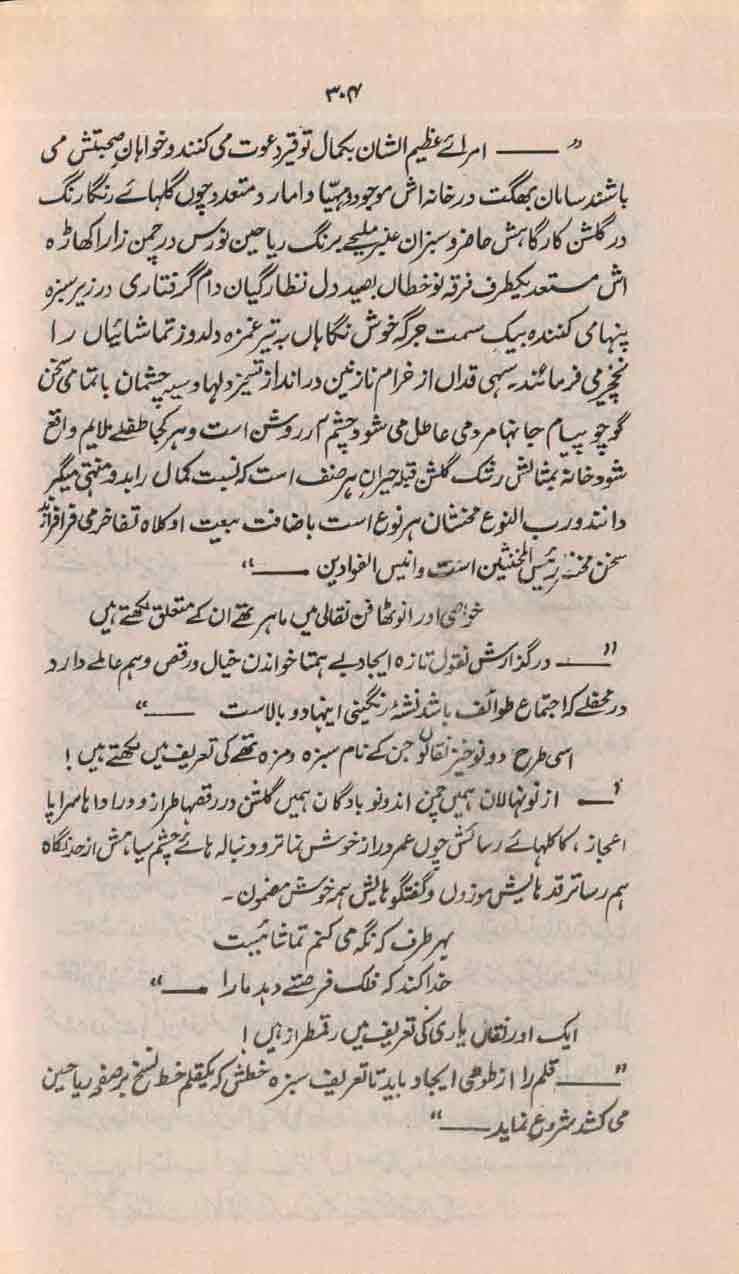 ۳۰۴
"——— امرائے عظیم الشان بکمال توقیر دعوت می کنند و خواہان صحبتش می
باشند سامان بھگت در خانہ اش موجود و مہیّا و امارد متعدد چوں گلہائے رنگا رنگ
در گلشن کارگاہش حاضر و سبزان عنبر ملیحے برنگ ریاحین نورس در چمن زار اکھاڑہ
اش مستعد یکطرف فرقہ نوخطاں بصید دل نظارگیان دام گرفتاری در زیر سبزہ
پنہا می کنندہ بیک سمت جرگہ خوش نگاہاں بہ تیر غمزہ دلدوز تماشائیاں را
نخچیر می فرمائند۔ سہی قداں از خرام نازنین در انداز تسخیز دلہا و سیہ چشمان با تمامی سخن
گو چو پیام جانہا مردمی عاطل می شود چشم ار روشن است و ہر کجا طفلے ملایم واقع
شود خانہ بمثالش رشک گلشن قبلہ حیران ہر صنف است کہ نسبت کمال را بدو منتہی میگر
دانند و رب النوع مخنثان ہر نوع است باضافت بیعت او کلاہ تفاخر می فرافرازند
سخن مختصر رئیس المخنثین است و انیس الفوادین ———"
خواصی اور انوٹھا فن نقالی میں ماہر تھے ان کے متعلق لکھتے ہیں
"——— در گذارش نقول تازہ ایجاد بے ہمتا خواندن خیال و رقص و ہم عاملے دارد
در محفلے کہ اجتماع طوائف باشد نشۂ رنگینی اینہا دو بالاست ———"
اسی طرح دو نوخیز نقالوں جن کے نام سبزہ و مزہ تھے کی تعریف میں لکھتے ہیں !
"——— از نونہالان ہمیں چمن اند و نوبادگان ہمیں گلشن در رقصہا طراز و در اداہا سراپا
اعجاز ، کاکلہائے رسائش چوں عمر دراز خوش نما تر و دنبالہ ہائے چشم سیاہش از خدنگاہ
ہم رسا تر قد ہایش موزوں و گفتگو ہایش ہمہ خوش مضمون ۔
بہر طرف کہ نگہ می کنم تماشائیست
خدا کند کہ فلک فرصتے دہد مارا ———"
ایک اور نقال یاری کی تعریف میں رقمطراز ہیں !
"——— قلم را از طوطی ایجاد باید تا تعریف سبزہ خطش کہ یکقلم خط نسخ بر صفحہ ریاحین
می کشد شروع نماید ———"